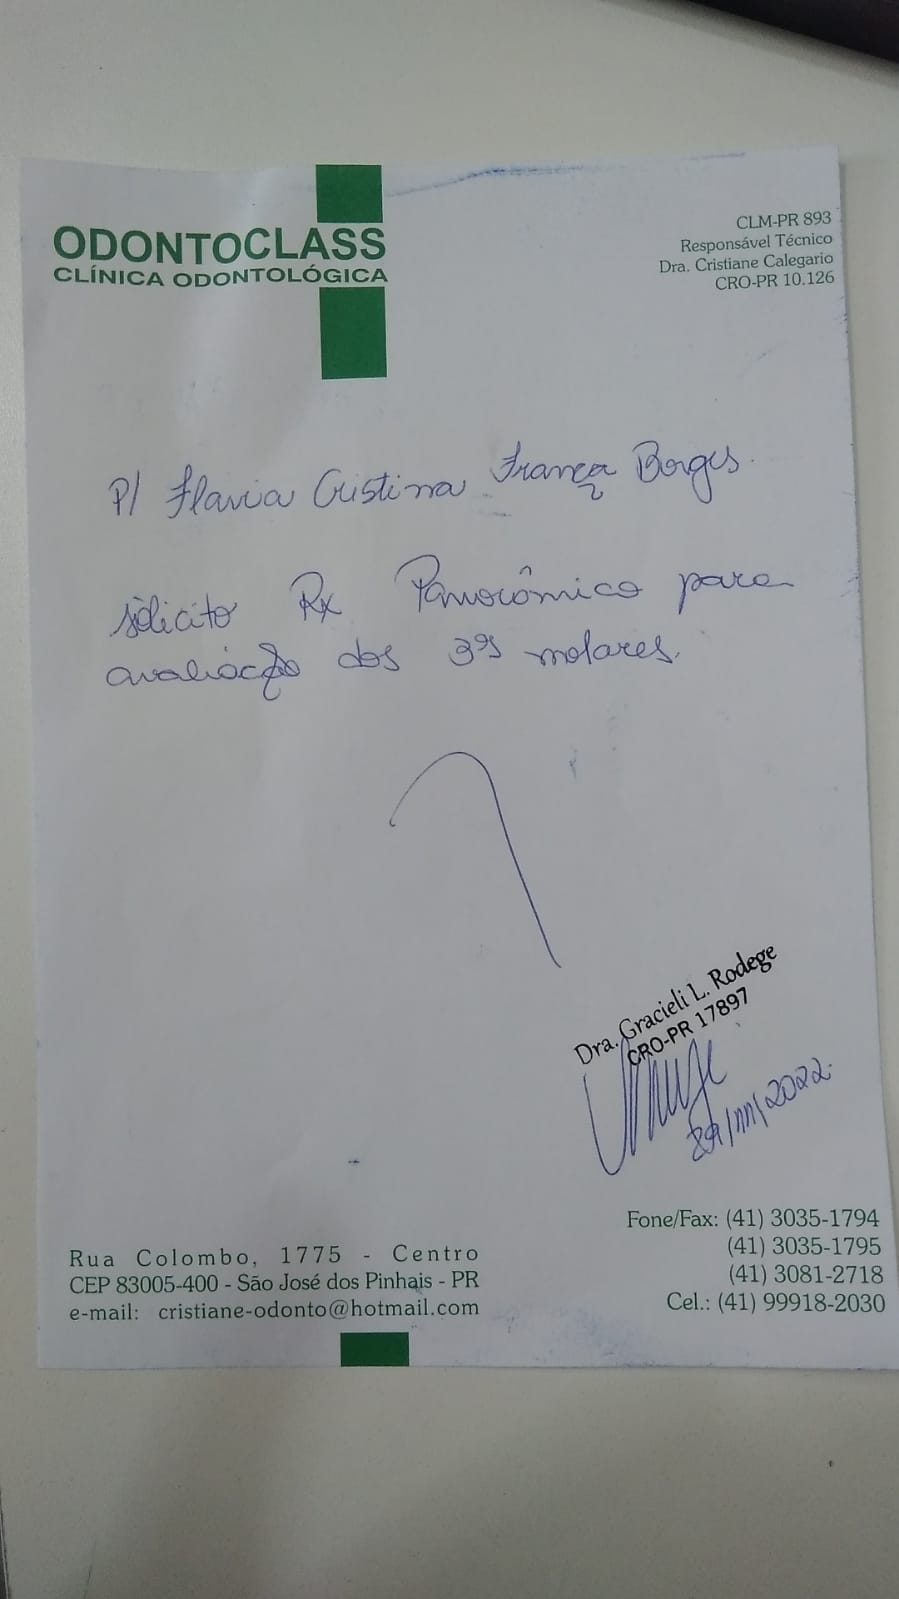 ODONTOCLASS
CLÍNICA ODONTOLÓGICA
CLM-PR 893
Responsável Técnico
Dra. Cristiane Calegario
CRO-PR 10.126
P/ Flavia Cristina França Borges.
solicito Rx Panorâmico para
avaliação dos 3ºs molares.
Dra. Gracieli L. Rodege
CRO-PR 17897
/11/2022
Rua Colombo, 1775 - Centro
CEP 83005-400 - São José dos Pinhais - PR
e-mail: cristiane-odonto@hotmail.com
Fone/Fax: (41) 3035-1794
(41) 3035-1795
(41) 3081-2718
Cel.: (41) 99918-2030